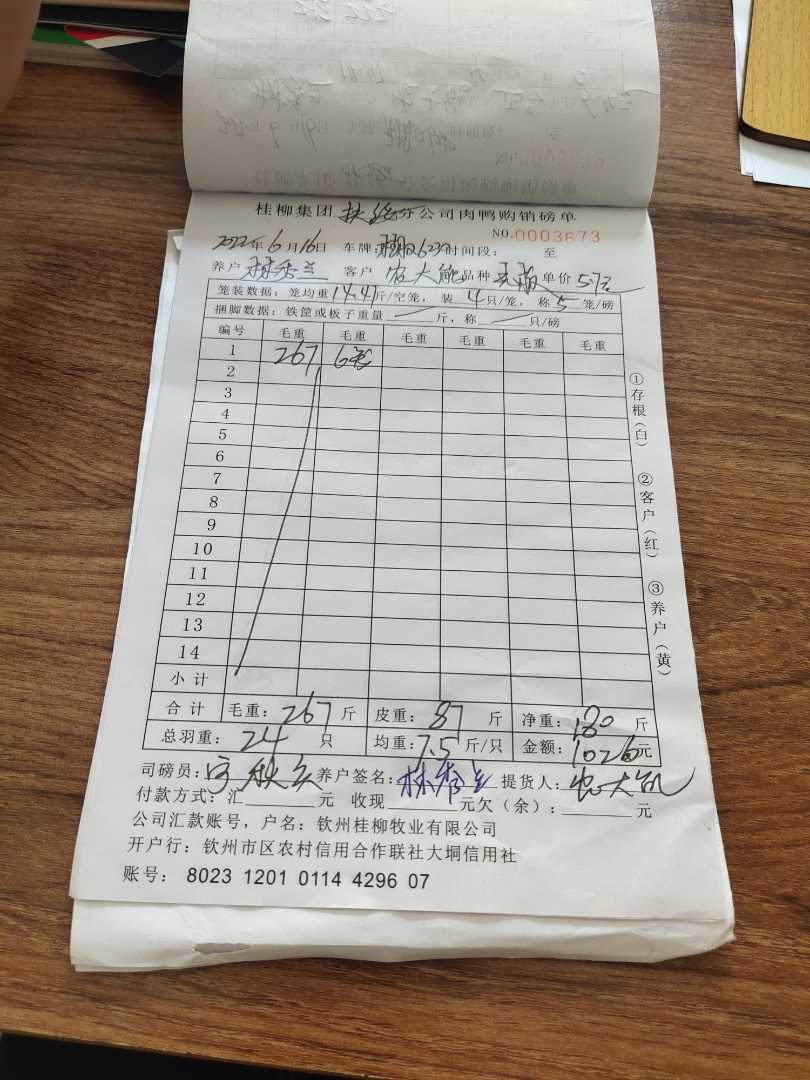 桂柳集团扶绥分公司肉鸭购销磅单
NO.0003673
2022年6月16日 车牌 623 时间段： 至
养户 林秀兰 客户 农大能 品种 单价 5.7元
笼装数据：笼均重14.4斤/空笼，装4只/笼，称5笼/磅
捆脚数据：铁筐或板子重量 — 斤，称 — 只/磅
编号 毛重 毛重 毛重 毛重 毛重 毛重
1 267 6笼
2
3
4
5
6
7
8
9
10
11
12
13
14
小计
合计 毛重：267斤 皮重：87斤 净重：180斤
总羽重：24只 均重：7.5斤/只 金额：1026元
司磅员： 养户签名：林秀兰 提货人：农大能
付款方式：汇 元 收现 元欠（余）： 元
公司汇款账号，户名：钦州桂柳牧业有限公司
开户行：钦州市区农村信用合作联社大垌信用社
账号： 8023 1201 0114 4296 07
①存根（白）
②客户（红）
③养户（黄）